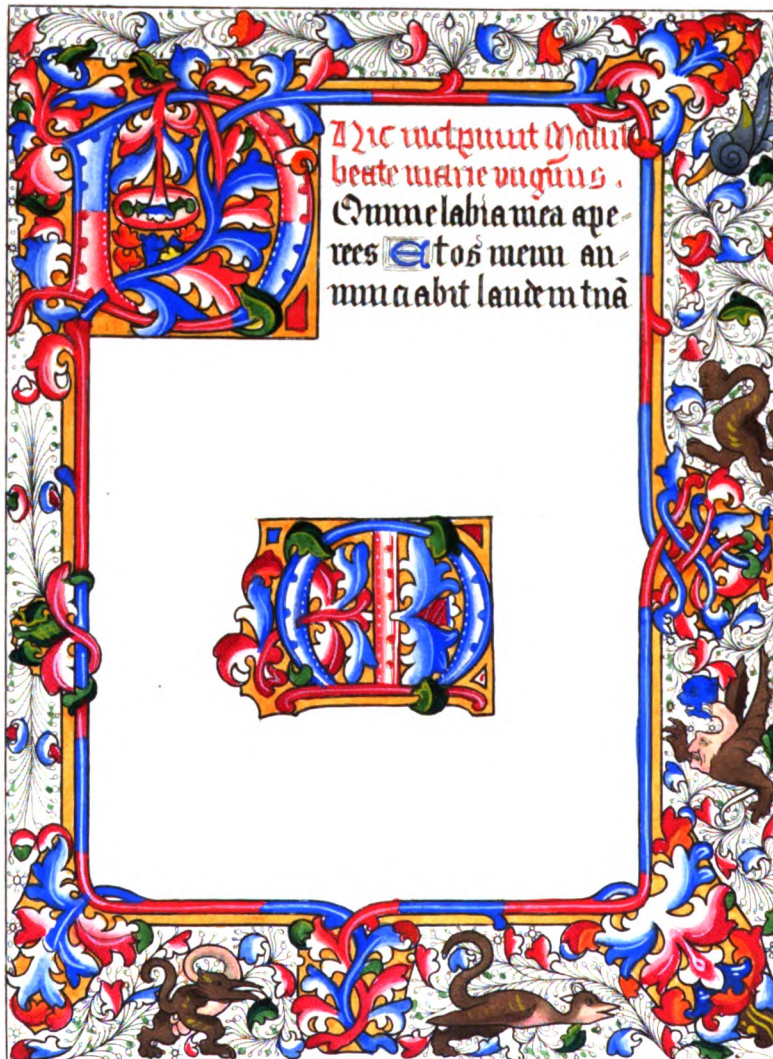 Hic incipiunt Matut
beate marie virginis .
DOmine labia mea ape=
ries Et os meum an=
nunciabit laudem tuā
M